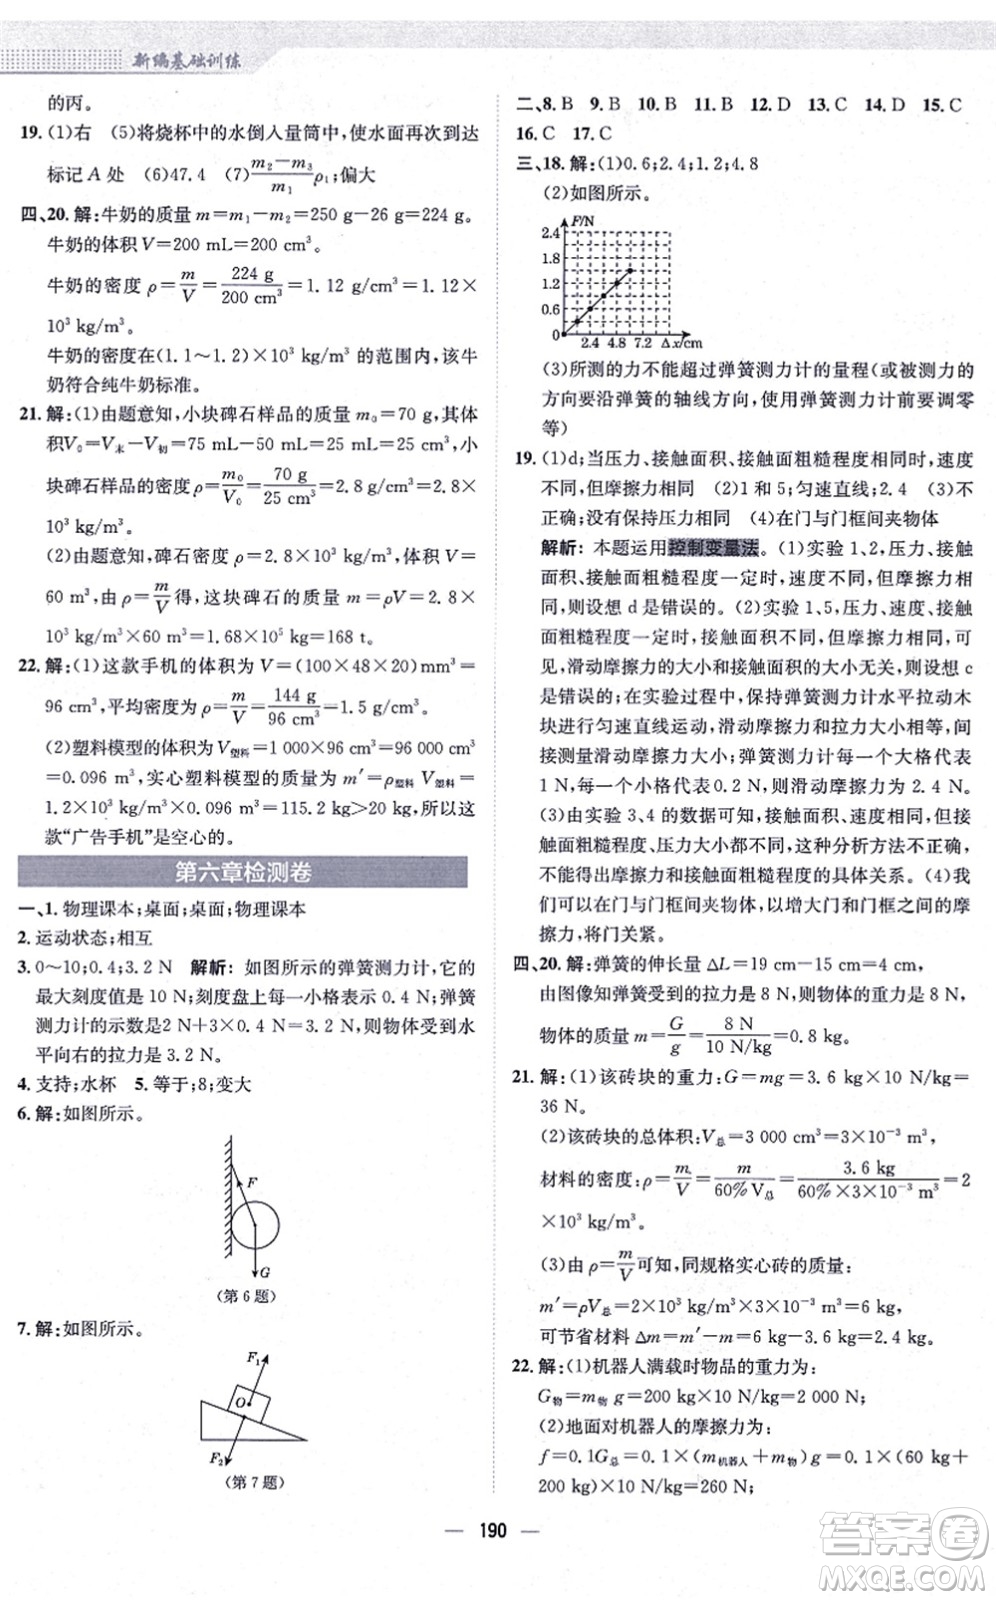 新编基础训练
的丙。
19. (1)右 (5)将烧杯中的水倒入量筒中,使水面再次到达
标记 A 处 (6)47.4 (7)\frac{m₂-m₃}{m₁}ρ₁;偏大
四、20. 解:牛奶的质量 m=m₁-m₂=250 g-26 g=224 g。
牛奶的体积 V=200 mL=200 cm³。
牛奶的密度 ρ=\frac{m}{V}=\frac{224 g}{200 cm³}=1.12 g/cm³=1.12×
10³ kg/m³。
牛奶的密度在(1.1~1.2)×10³ kg/m³ 的范围内,该牛
奶符合纯牛奶标准。
21. 解:(1)由题意知,小块碑石样品的质量 m₀=70 g,其体
积V₀=V末-V初=75 mL-50 mL=25 mL=25 cm³,小
块碑石样品的密度 ρ=\frac{m₀}{V₀}=\frac{70 g}{25 cm³}=2.8 g/cm³=2.8×
10³ kg/m³。
(2)由题意知,碑石密度 ρ=2.8×10³ kg/m³,体积 V=
60 m³,由 ρ=\frac{m}{V}得,这块碑石的质量 m=ρV=2.8×
10³ kg/m³×60 m³=1.68×10⁵ kg=168 t。
22. 解:(1)这款手机的体积为 V=(100×48×20)mm³=
96 cm³,平均密度为 ρ=\frac{m}{V}=\frac{144 g}{96 cm³}=1.5 g/cm³。
(2)塑料模型的体积为 V塑料=1 000×96 cm³=96 000 cm³
=0.096 m³,实心塑料模型的质量为 m′=ρ塑料V塑料=
1.2×10³ kg/m³×0.096 m³=115.2 kg>20 kg,所以这
款“广告手机”是空心的。
第六章检测卷
一、1. 物理课本;桌面;桌面;物理课本
2. 运动状态;相互
3. 0~10;0.4;3.2 N 解析:如图所示的弹簧测力计,它的
最大刻度值是 10 N;刻度盘上每一小格表示 0.4 N;弹簧
测力计的示数是2 N+3×0.4 N=3.2 N,则物体受到水
平向右的拉力是 3.2 N。
4. 支持;水杯 5. 等于;8;变大
6. 解:如图所示。
F
G
(第 6 题)
7. 解:如图所示。
F₁
O
F₂
(第 7 题)
二、8. B 9. B 10. B 11. B 12. D 13. C 14. D 15. C
16. C 17. C
三、18. 解:(1)0.6;2.4;1.2;4.8
(2)如图所示。
F/N
2.4
1.8
1.2
0.6
0 2.4 4.8 7.2 Δx/cm
(3)所测的力不能超过弹簧测力计的量程(或被测力的
方向要沿弹簧的轴线方向、使用弹簧测力计前要调零
等)
19. (1)d;当压力、接触面积、接触面粗糙程度相同时,速度
不同,但摩擦力相同 (2)1 和 5;匀速直线;2.4 (3)不
正确;没有保持压力相同 (4)在门与门框间夹物体
解析:本题运用控制变量法。(1)实验 1、2,压力、接触
面积、接触面粗糙程度一定时,速度不同,但摩擦力相
同,则设想 d 是错误的。(2)实验 1、5,压力、速度、接触
面粗糙程度一定时,接触面积不同,但摩擦力相同,因
此,滑动摩擦力的大小和接触面积的大小无关,则设想 c
是错误的;在实验过程中,保持弹簧测力计水平拉动木
块进行匀速直线运动,滑动摩擦力和拉力大小相等,间
接测量滑动摩擦力大小;弹簧测力计每一个大格代表
1 N,每一个小格代表 0.2 N,则滑动摩擦力为 2.4 N。
(3)由前面分析和实验 2、4 数据可知,接触面积、压力、
接触面粗糙程度、摩擦力大小都不同,这种分析方法不
正确,不能得出摩擦力和接触面粗糙程度的具体关系。
所得出摩擦力和接触面粗糙程度的具体关系。(4)我们
可以在门与门框间夹物体,以增大门和门框之间的摩
擦力,将门关紧。
四、20. 解:弹簧的伸长量 ΔL=19 cm-15 cm=4 cm,
由图像知弹簧受到的拉力是 8 N,物体的重力是 8 N,
物体的质量 m=\frac{G}{g}=\frac{8 N}{10 N/kg}=0.8 kg。
21. 解:(1)该砖块的重力:G=mg=3.6 kg×10 N/kg=
36 N。
(2)该砖块的总体积:V总=3 000 cm³=3×10⁻³ m³,
材料的密度:ρ=\frac{m}{V}=\frac{m}{60%V总}=\frac{3.6 kg}{60%×3×10⁻³ m³}=2
×10³ kg/m³。
(3)由 ρ=\frac{m}{V}可知,同规格实心砖的质量:
m′=ρV总=2×10³ kg/m³×3×10⁻³ m³=6 kg,
可节省材料 Δm=m′-m=6 kg-3.6 kg=2.4 kg。
22. 解:(1)机器人满载时物品的重力为:
G物=m物g=200 kg×10 N/kg=2 000 N;
(2)地面对机器人的摩擦力为:
f=0.1G总=0.1×(m机器人+m物)g=0.1×(60 kg
+200 kg)×10 N/kg=260 N;
190
答案圈
MXQE.COM